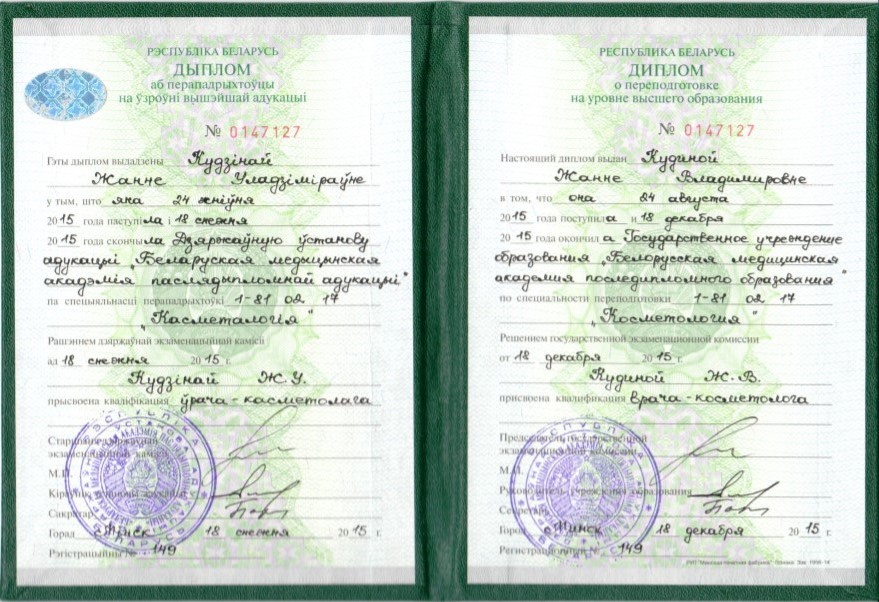 РЭСПУБЛІКА БЕЛАРУСЬ
ДЫПЛОМ
аб перападрыхтоўцы
на ўзроўні вышэйшай адукацыі
№ 0147127
Гэты дыплом выдадзены Кудзінай
Жанне Уладзіміраўне
у тым, што яна 24 жніўня
2015 года паступіла і 18 снежня
2015 года скончыла Дзяржаўную ўстанову
адукацыі „Беларуская медыцынская
акадэмія паслядыпломнай адукацыі"
па спецыяльнасці перападрыхтоўкі 1-81 02 17
„Касметалогія"
Рашэннем дзяржаўнай экзаменацыйнай камісіі
ад 18 снежня 2015 г.
Кудзінай Ж.У.
прысвоена кваліфікацыя ўрача-касметолага
Старшыня дзяржаўнай
экзаменацыйнай камісіі
М.П.
Кіраўнік установы адукацыі
Сакратар
Горад г.Мінск 18 снежня 2015 г.
Рэгістрацыйны № 149
РЕСПУБЛИКА БЕЛАРУСЬ
ДИПЛОМ
о переподготовке
на уровне высшего образования
№ 0147127
Настоящий диплом выдан Кудиной
Жанне Владимировне
в том, что она 24 августа
2015 года поступила и 18 декабря
2015 года окончила Государственное учреждение
образования „Белорусская медицинская
академия последипломного образования"
по специальности переподготовки 1-81 02 17
„Косметология"
Решением государственной экзаменационной комиссии
от 18 декабря 2015 г.
Кудиной Ж.В.
присвоена квалификация врача-косметолога
Председатель государственной
экзаменационной комиссии
М.П.
Руководитель учреждения образования
Секретарь
Город г.Минск 18 декабря 2015 г.
Регистрационный № 149